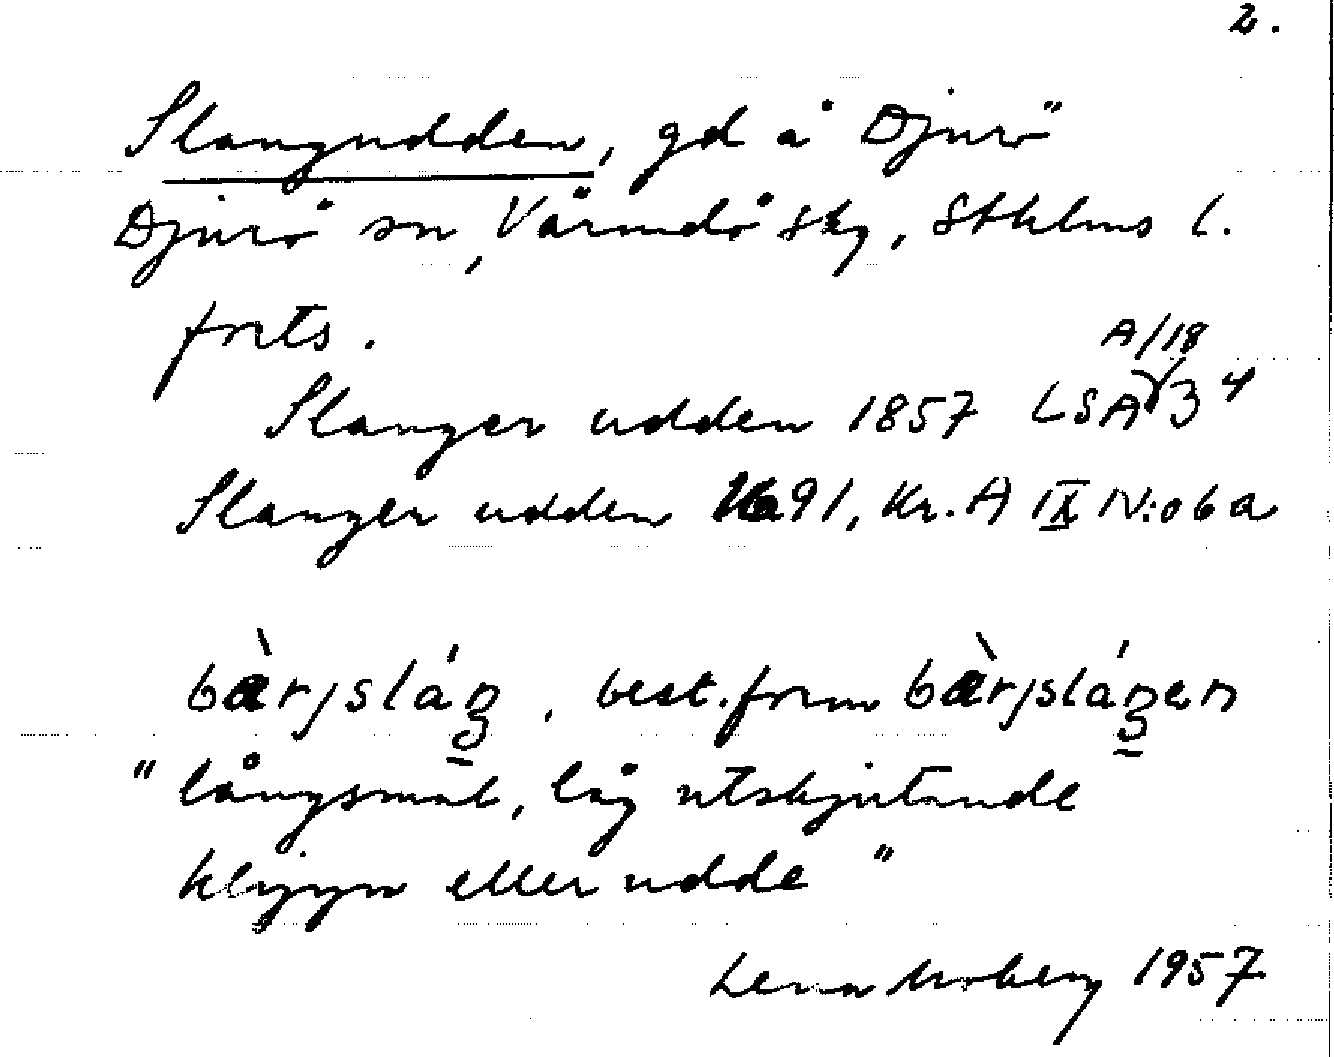 2.
Slangudden, gd å Djurö
Djurö sn, Värmdö skg, Sthlms l.
forts.
A/18
Slanger udden 1857 LSA 3 4
Slanger udden 1691, Kr. A IX N:o 6 a
bæ̀rjsláŋ, best. form bæ̀rjsláŋen
"långsmal, låg utskjutande
klippa eller udde"
Lena Moberg 1957